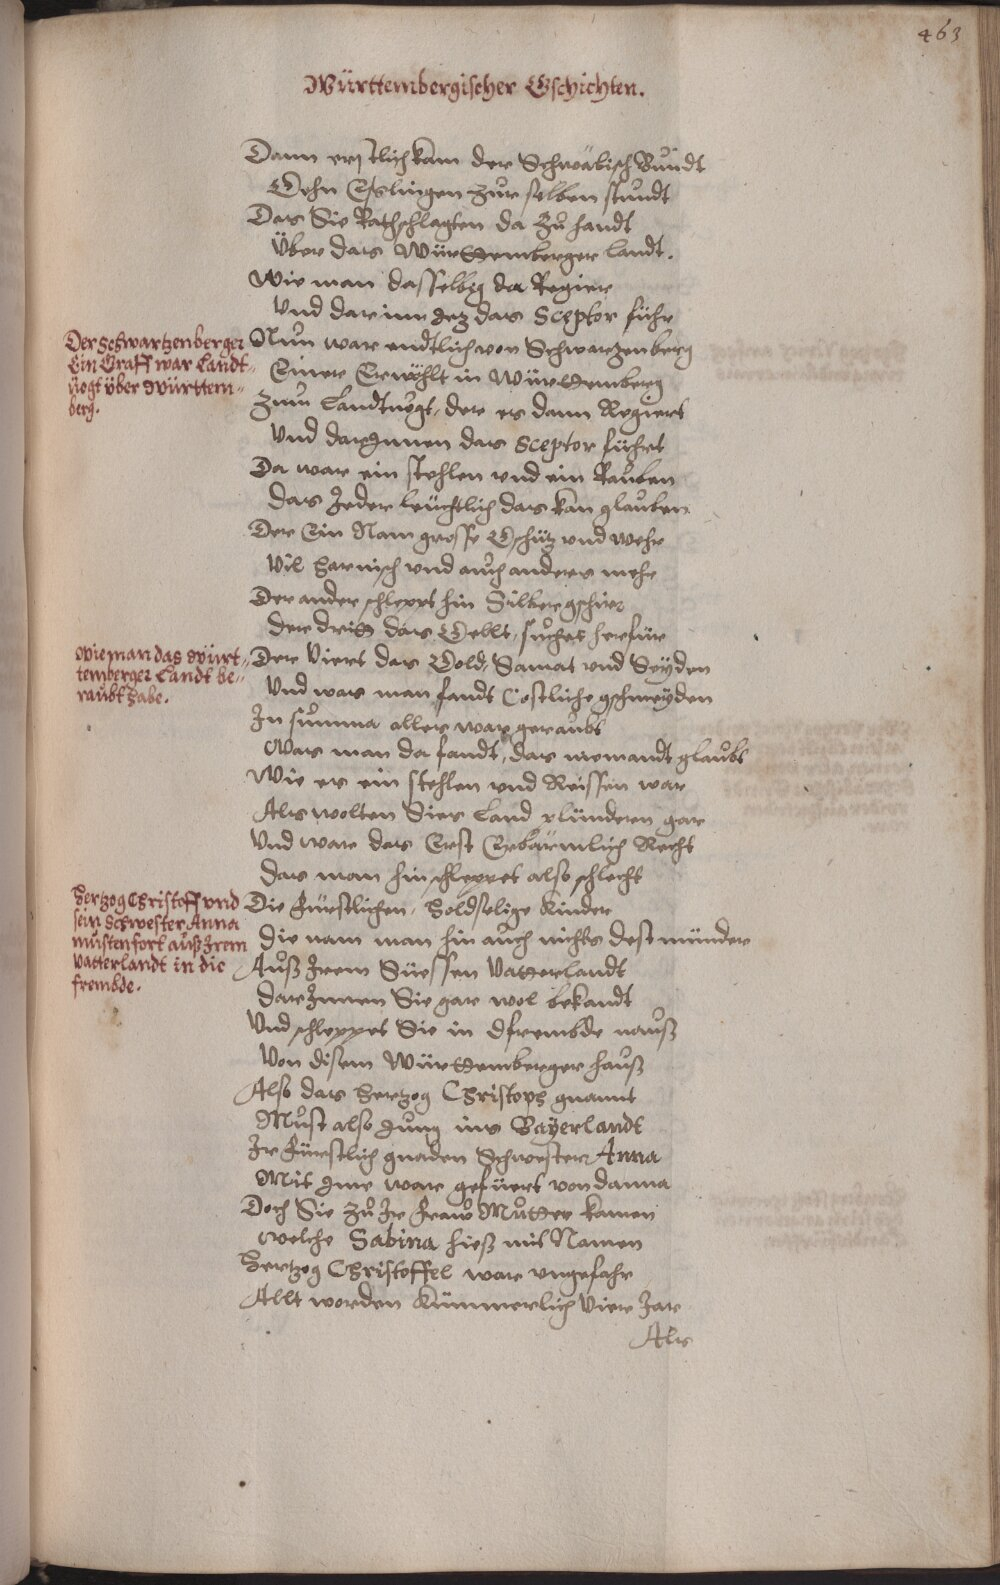 463
Württembergischer Gschichten.
Dann erstlich kam der Schwäbisch Bundt
Gehn Esslingen zur selben stundt
Das Sie Rathschlagten da zu handt
Über das Württemberger Landt.
Wie man dasselbig da Regier
Und darinn jetz das Sceptor führ
Der Schwartzenberger
Ein Graff war Landt-
vogt über Württem-
berg.
Nun war endtlich von Schwarzenberg
Einer Erwöhlt in Württemberg
Zum Landtvogt, der es dann Regiert
Und darJnnen das Sceptor führt
Da war ein stehlen und ein Rauben
Das Jeder leüchtlich das kan glauben
Der Ein Nam grosse Gschütz und wehr
Vil Harnisch und auch anders mehr
Der ander schleppt hin Silbergschirr
Der dritt das Gellt, suchet herfür
Wie man das Würt-
temberger Landt be-
raubt habe.
Der Viert das Gold, Samat und Seyden
Und was man fandt Costliche gschmeyden
In summa alles war geraubt
Was man da fandt, das niemandt glaubt
Wie es ein stehlen und Reissen war
Als wolten Sies Land plünderen gar
Und ware das Erst Erbärmlich Recht
Das man hinschleppet also schlecht
Hertzog Christoff und
sein Schwester Anna
musten fort auß Jrem
Vatterlandt in die
frembde.
Die Fürstlichen, Holdselige Kinder
Die nam man hin auch nichts dest münder
Auß Jrem Süessen Vatterlandt
DarJnnen Sie gar wol bekandt
Und schleppet Sie in dfrembde nauß
Von disem Württemberger hauß
Also das Hertzog Christoph gnannt
Must also Jung ins Bayerlandt
Ir Fürstlich gnaden Schwester Anna
Mit Jme ware gefüert von danna
Doch Sie zu Jr Fraw Mutter kamen
welche Sabina hieß mit Namen
Hertzog Christoffel ware ungefahr
Allt worden Kümmerlich Vier Jar
Als